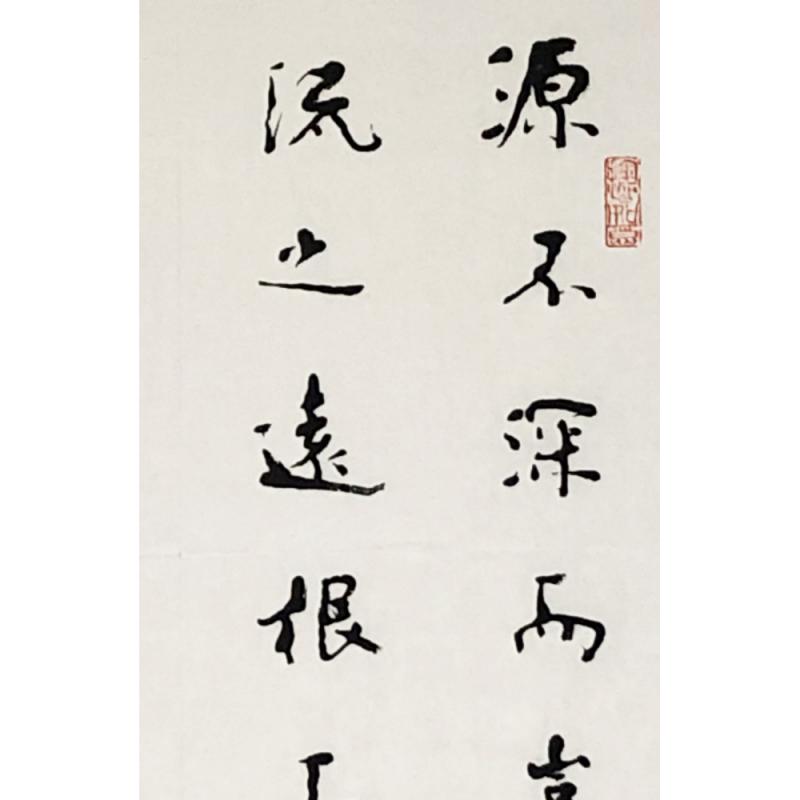 源不深而
流之遠根